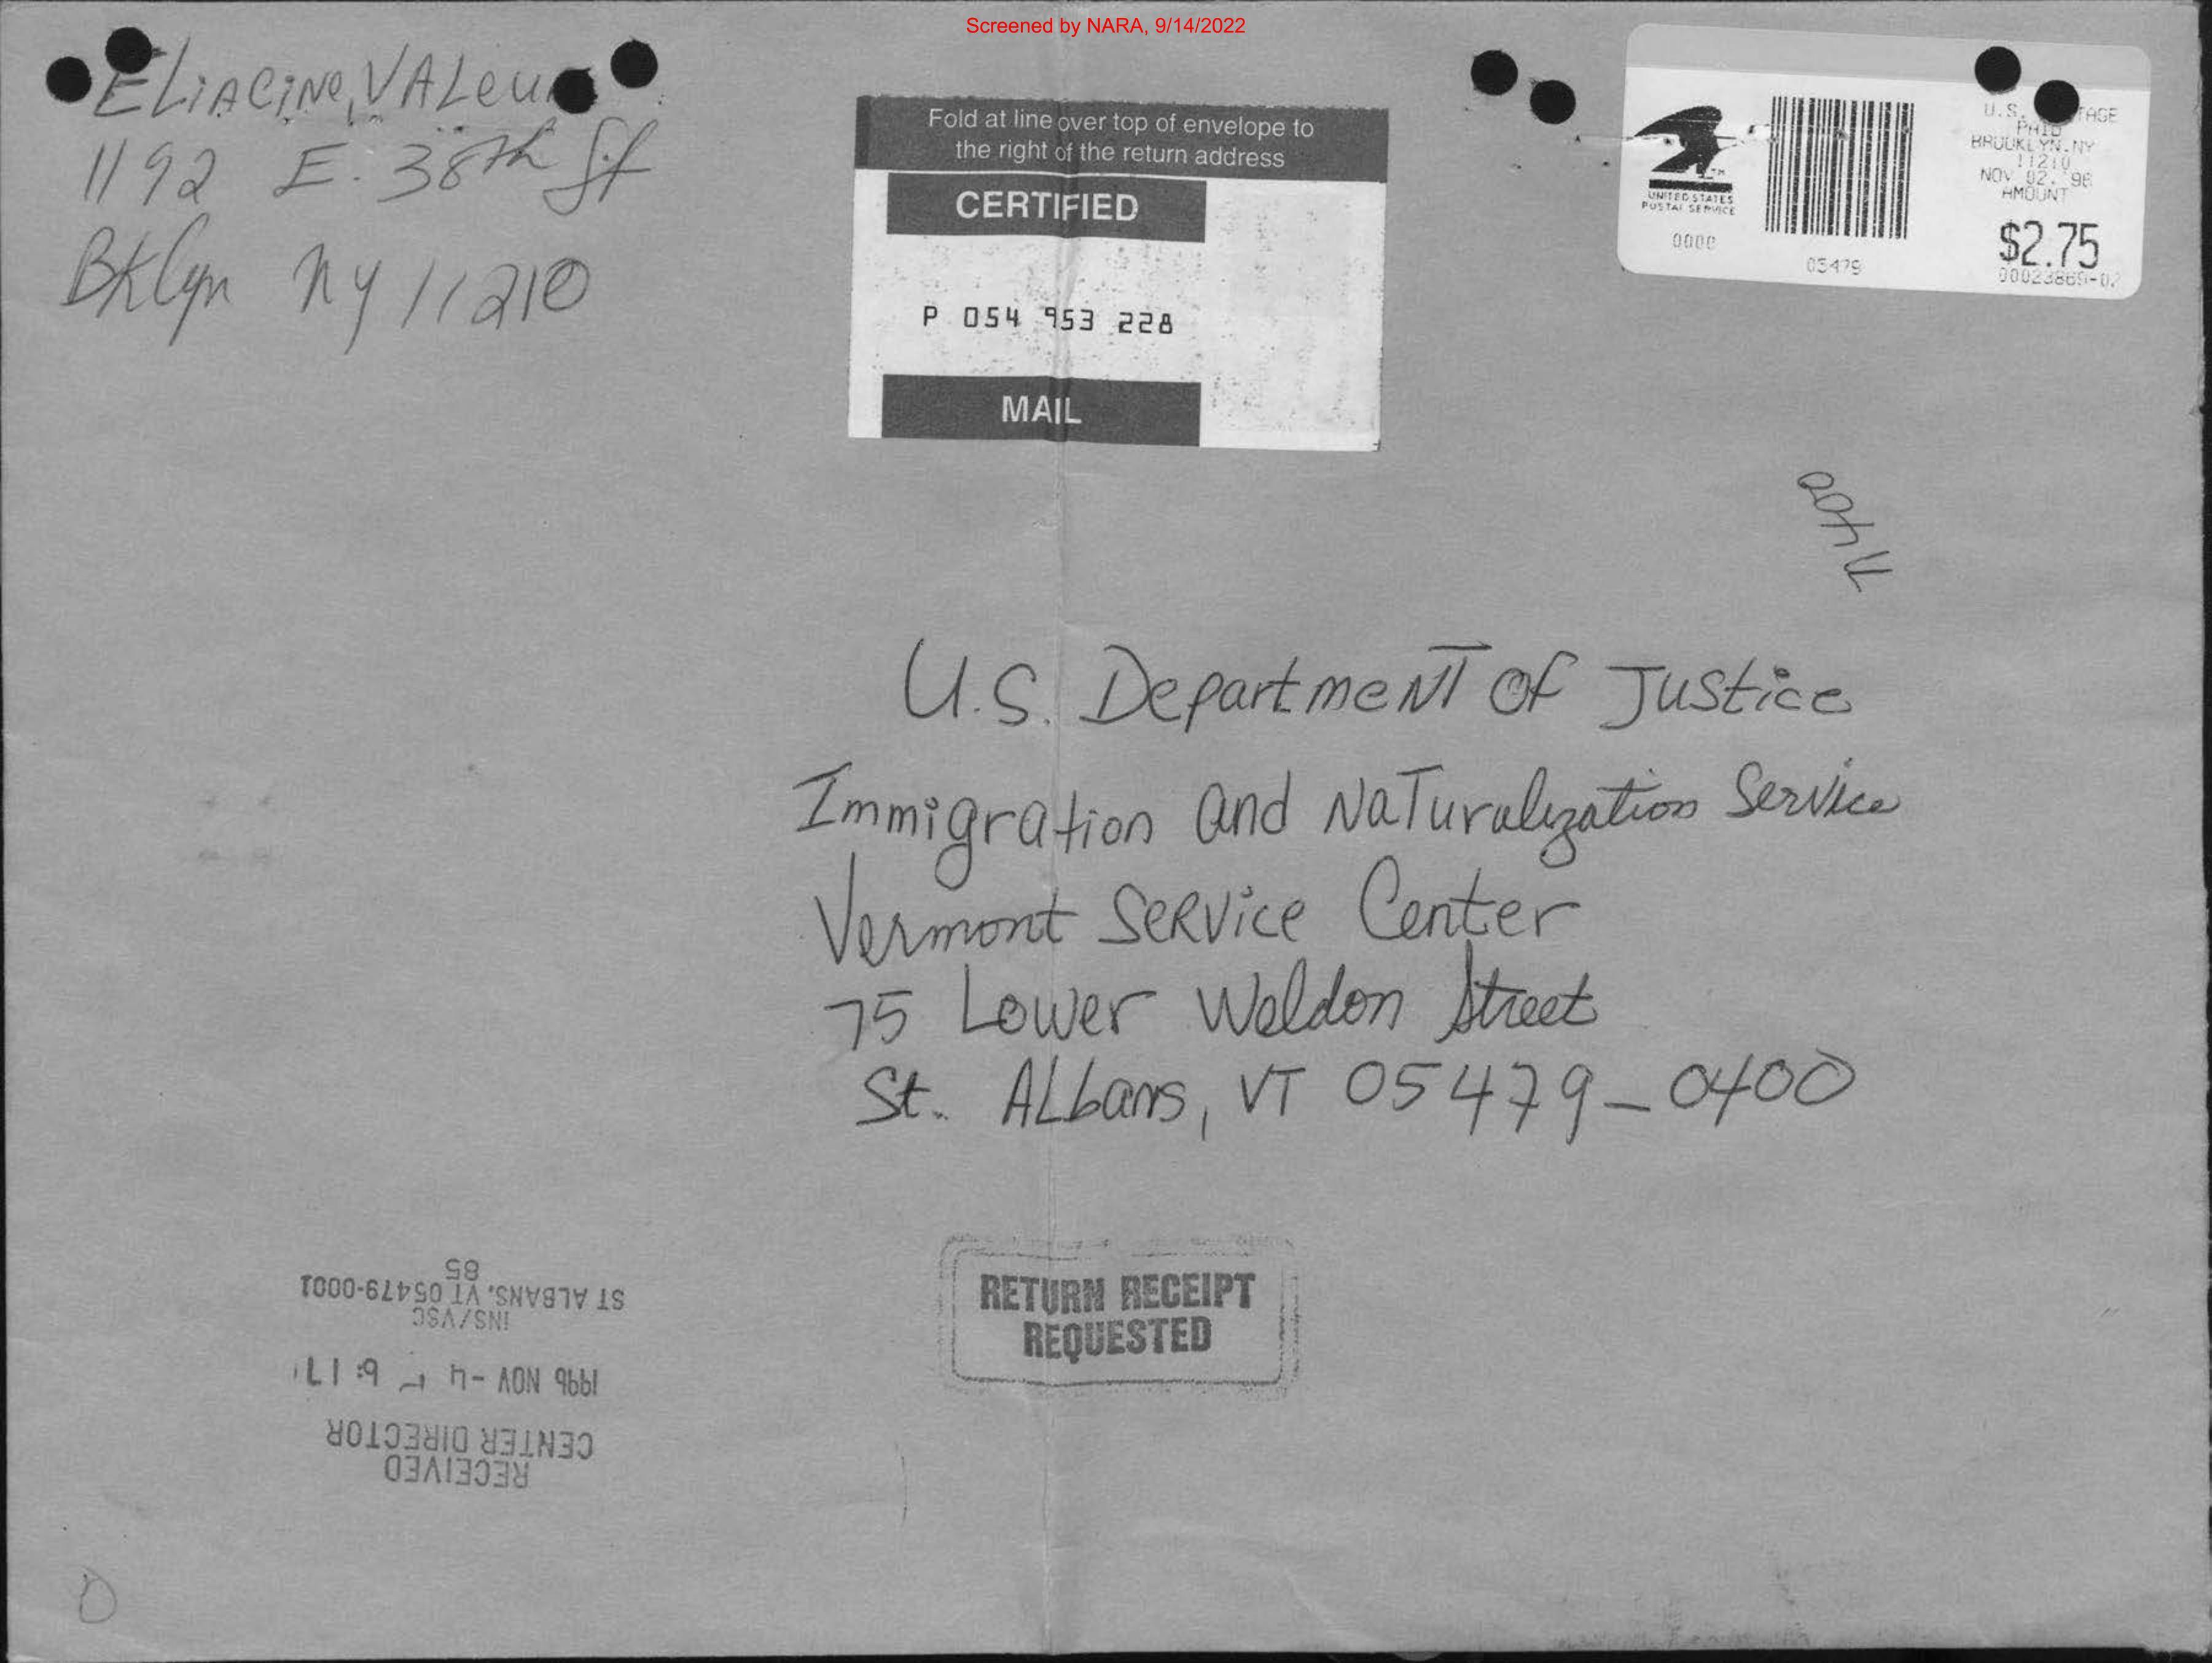 Screened by NARA, 9/14/2022
ELiACiNe, VALeu
1192 E. 38th St
Bklyn NY 11210
Fold at line over top of envelope to
the right of the return address
CERTIFIED
P 054 953 228
MAIL
UNITED STATES
POSTAL SERVICE
0000
05479
U.S. TAGE
PAID
BROOKLYN.NY
11210
NOV 02. '96
AMOUNT
$2.75
00023869-02
U.S. DepartmeNT Of Justice
Immigration and NaTuralization Service
Vermont SeRvice Center
75 Lower Weldon Street
St. ALbans, VT 05479-0400
RETURN RECEIPT
REQUESTED
RECEIVED
CENTER DIRECTOR
1996 NOV -4 6:17
INS/VSC
ST ALBANS, VT 05479-0001
85